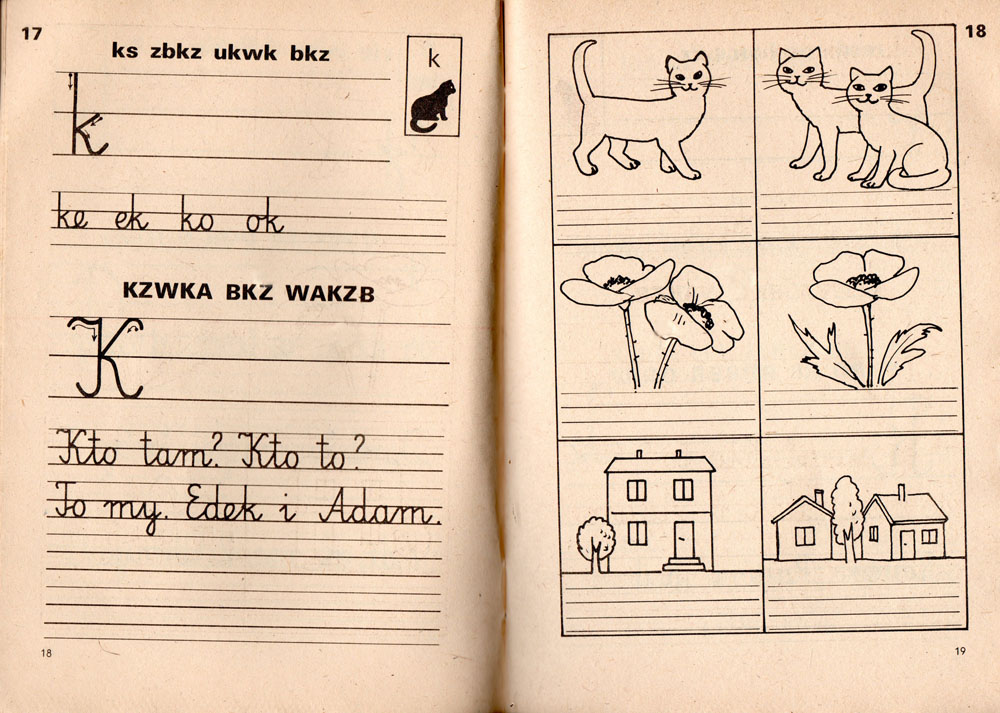 17
ks zbkz ukwk bkz
k
k
ke ek ko ok
KZWKA BKZ WAKZB
K
Kto tam? Kto to?
To my. Edek i Adam.
18
18
19